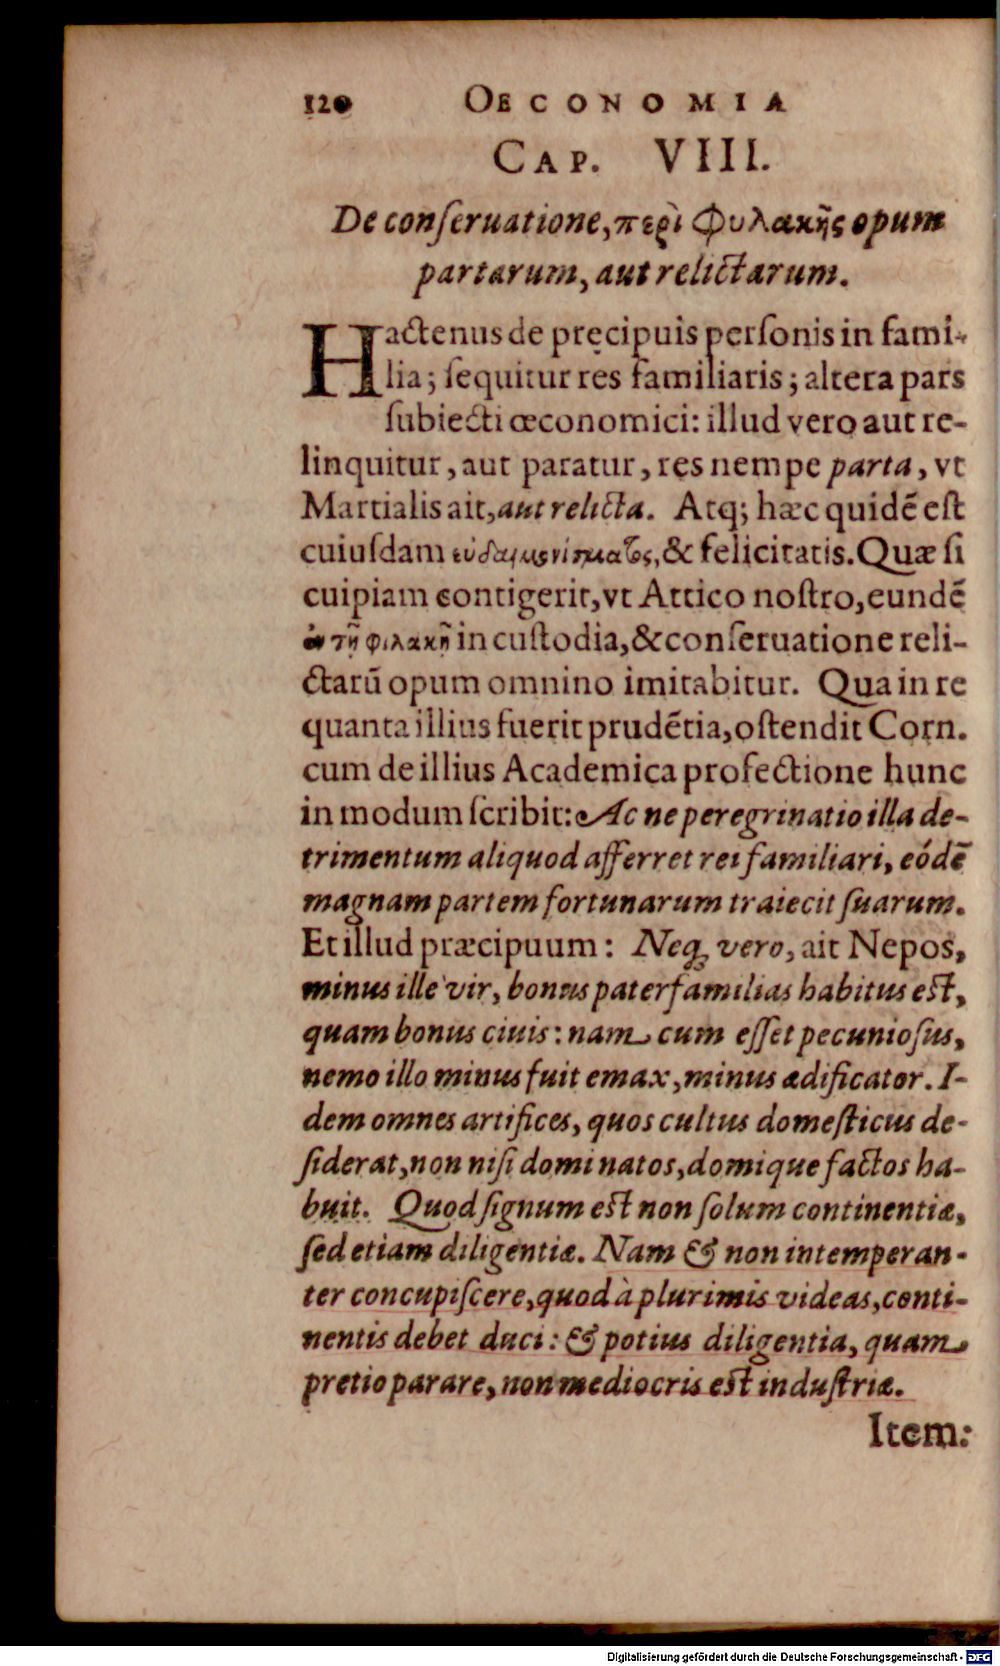 120 OECONOMIA
CAP. VIII.
De conſeruatione, περὶ Φυλακῆς opum
partarum, aut relictarum.
Hactenus de pręcipuis perſonis in fami-
lia; ſequitur res familiaris; altera pars
ſubiecti œconomici: illud vero aut re-
linquitur, aut paratur, res nempe parta, vt
Martialis ait, aut relicta. Atq; hæc quidē eſt
cuiuſdam & felicitatis. Quæ ſi
cuipiam contigerit, vt Attico noſtro, eundē
ἐν τῇ φιλακῇ in cuſtodia, & conſeruatione reli-
ctarū opum omnino imitabitur. Qua in re
quanta illius fuerit prudētia, oſtendit Corn.
cum de illius Academica profectione hunc
in modum ſcribit: Ac ne peregrinatio illa de-
trimentum aliquod afferret rei familiari, eódē
magnam partem fortunarum traiecit ſuarum.
Et illud præcipuum: Neq; vero, ait Nepos,
minus ille vir, bonus paterfamilias habitus eſt,
quam bonus ciuis: nam cum eſſet pecunioſus,
nemo illo minus fuit emax, minus ædificator. I-
dem omnes artifices, quos cultus domeſticus de-
ſiderat, non niſi domi natos, domique factos ha-
buit. Quod ſignum eſt non ſolum continentiæ,
ſed etiam diligentiæ. Nam & non intemperan-
ter concupiſcere, quod à plurimis videas, conti-
nentis debet duci: & potius diligentia, quam
pretio parare, non mediocris eſt induſtriæ.
Item:
Digitalisierung gefördert durch die Deutsche Forschungsgemeinschaft - DFG